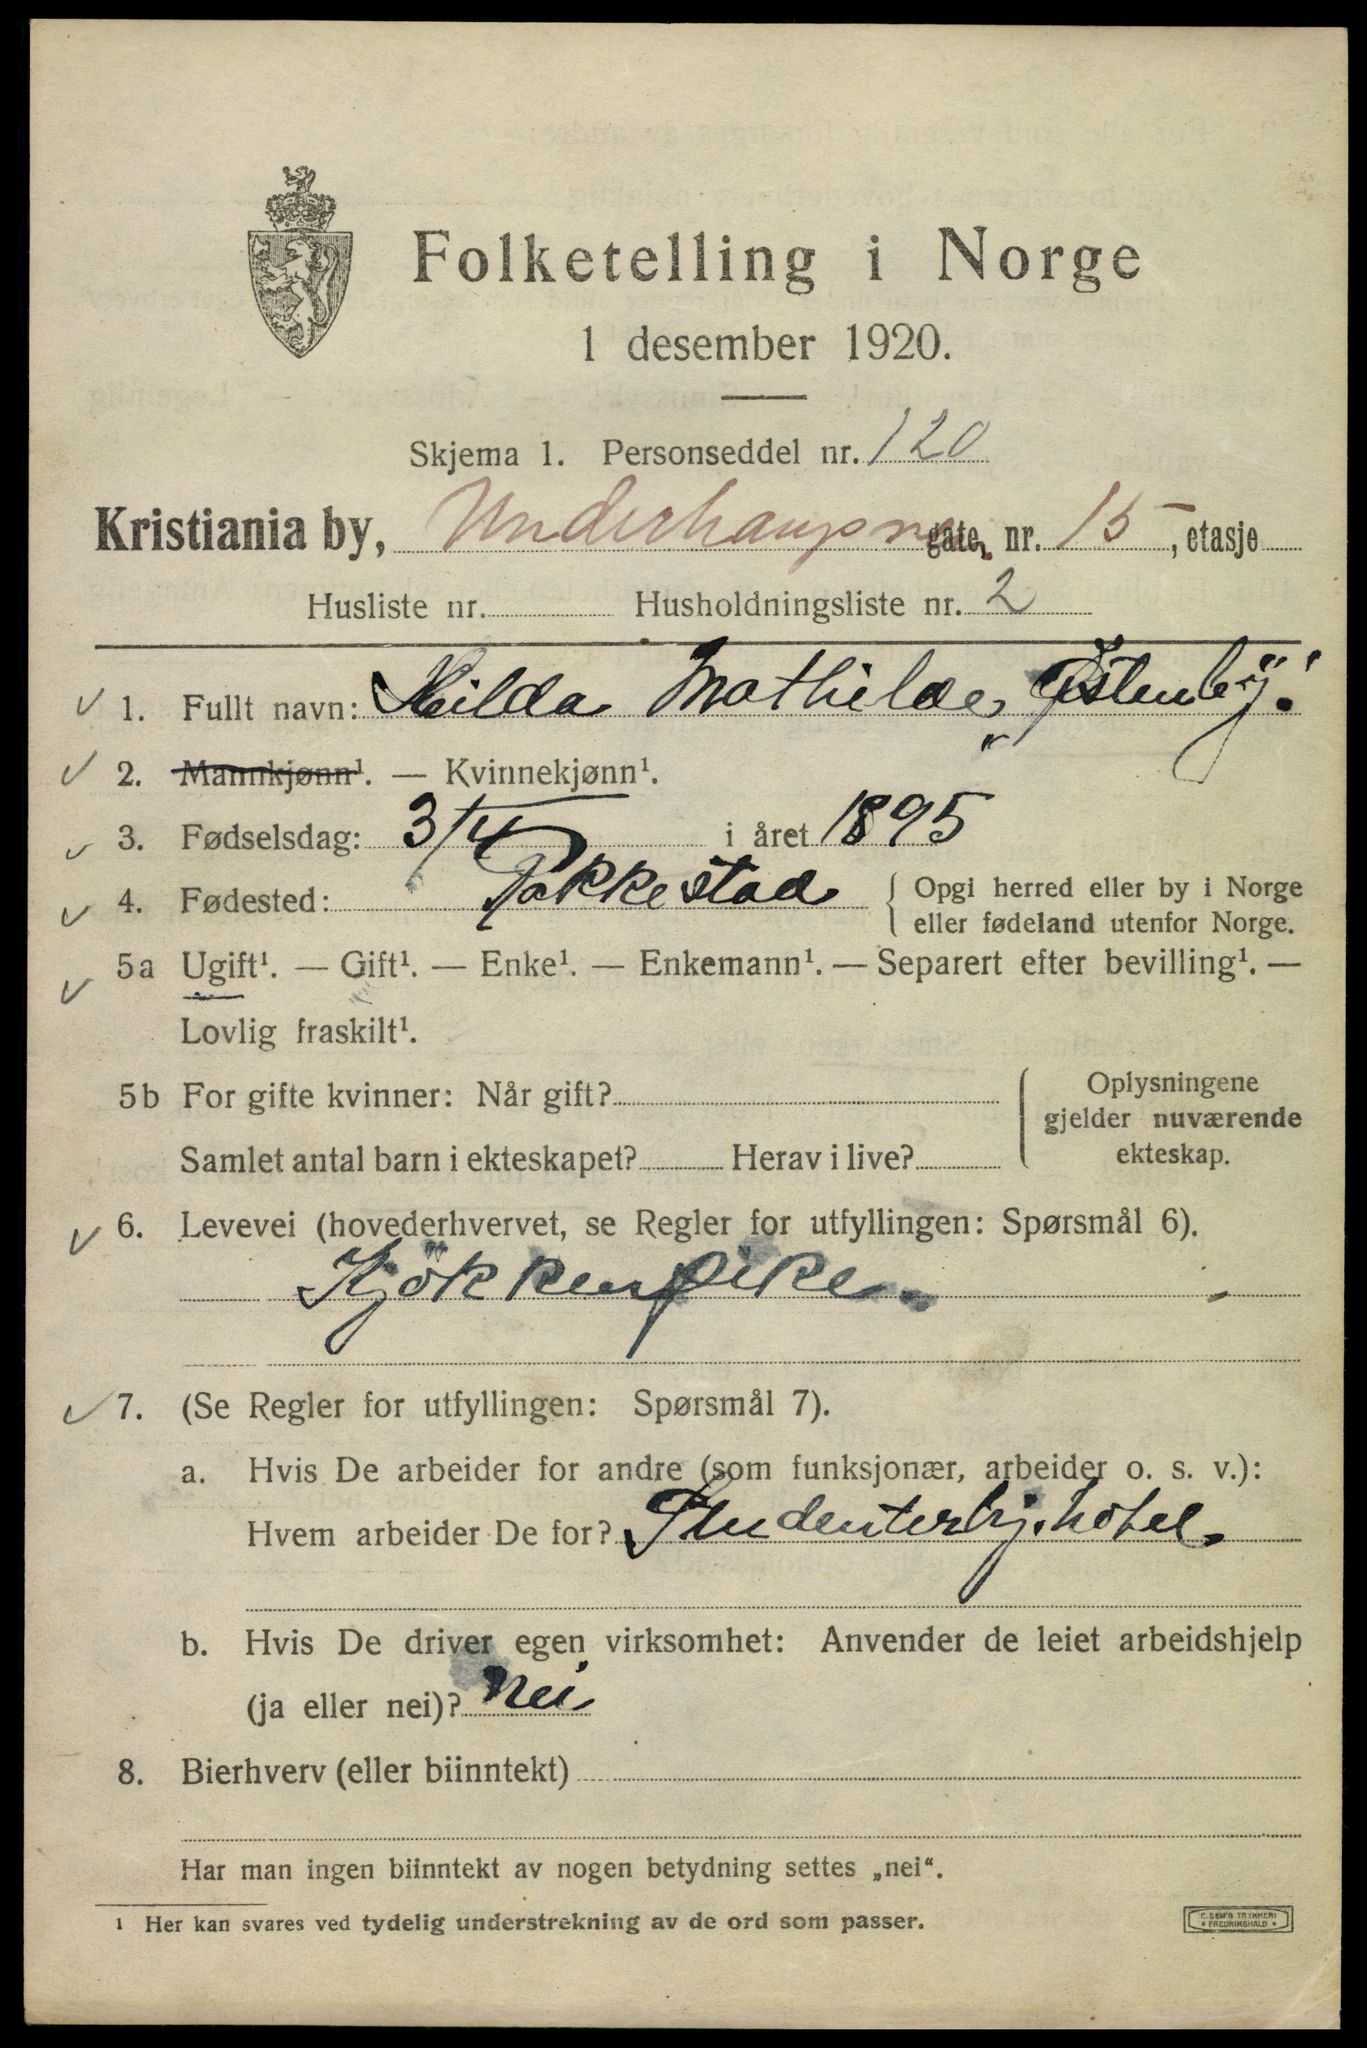 Folketelling i Norge
1 desember 1920.
Skjema 1. Personseddel nr. 120
Kristiania by, Underhaugsvn gate, nr. 15, etasje
Husliste nr. Husholdningsliste nr. 2
1. Fullt navn: Hilda Mathilde Østenbÿ.
2. Mannkjønn¹. — Kvinnekjønn¹.
3. Fødselsdag: 3/4 i året 1895
4. Fødested: Pakkestad { Opgi herred eller by i Norge
eller fødeland utenfor Norge.
5a Ugift¹. — Gift¹. — Enke¹. — Enkemann¹. — Separert efter bevilling¹. —
Lovlig fraskilt¹.
5b For gifte kvinner: Når gift? { Oplysningene
gjelder nuværende
Samlet antal barn i ekteskapet? Herav i live? ekteskap.
6. Levevei (hovederhvervet, se Regler for utfyllingen: Spørsmål 6).
Kjökkenpike.
7. (Se Regler for utfyllingen: Spørsmål 7).
a. Hvis De arbeider for andre (som funksjonær, arbeider o. s. v.):
Hvem arbeider De for? Studenterby.hotel.
b. Hvis De driver egen virksomhet: Anvender de leiet arbeidshjelp
(ja eller nei)? Nei
8. Bierhverv (eller biinntekt)
Har man ingen biinntekt av nogen betydning settes „nei“.
¹ Her kan svares ved tydelig understrekning av de ord som passer.
E. SEM'S TRYKKERI
* FREDRIKSHALD *